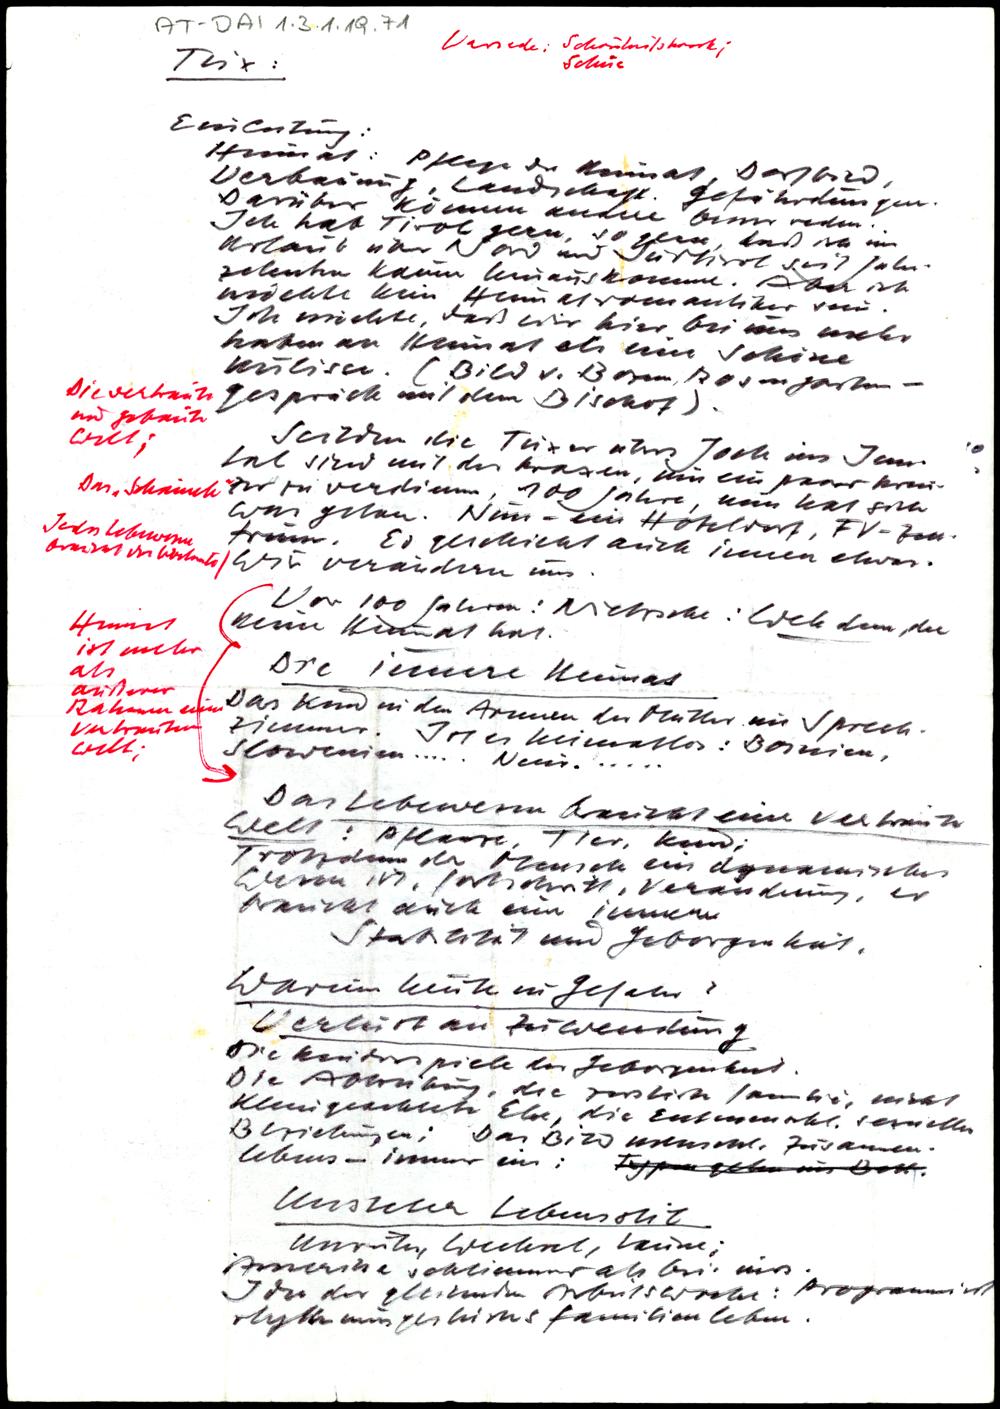 AT-DAI 1.3.1.19.71
Tux:
Einleitung:
Heimat: Pflege der Heimat, Dorfbild,
Verbauung, Landschaft. Gefährdungen.
Darüber können andere besser reden.
Ich hab Tirol gern, so gern, daß ich im
Urlaub über Nord und Südtirol seit Jahr-
zehnten kaum hinauskomme. Aber ich
möchte kein Heimatromantiker sein.
Ich möchte, daß wir hier bei uns mehr
haben an Heimat als eine schöne
Kulisse. (Bild v. Bozen, Rosengarten -
gespräch mit dem Bischof).
Die vertraute
und gebaute
Welt;
Seitdem die Tuxer übers Joch ins Inn-
tal sind mit der Kraxen, um ein paar Kreu-
zer zu verdienen, 100 Jahre, nun hat sich
was getan. Nun - ein Hoteldorf, FV-Zen-
trum. Es geschieht auch innen etwas.
Wir verändern uns.
Das
Jedes Lebewesen
braucht das
Vor 100 Jahren: Nietzsche: Weh dem, der
keine Heimat hat.
Heimat
ist mehr
als
äußerer
Rahmen einer
vertrauten
Welt;
Die innere Heimat
Das Kind in den Armen der Mutter im Sprech-
zimmer. Ist es heimatlos: Bosnien,
Slowenien..... Nein......
Das Lebewesen braucht eine vertraute
Welt: Pflanze, Tier, Kind;
Trotzdem der Mensch ein dynamisches
Wesen ist, Fortschritt, Veränderung, er
braucht auch eine innere
Stabilität und Geborgenheit.
Warum heute in Gefahr?
Verlust an Zuwendung
Die der Geborgenheit.
Die Abtreibung, die zerstörte Familie, nicht
Ehe, die sexuellen
Beziehungen; Das Bild menschl. Zusammen-
lebens - immer ein:
Unsteter Lebensstil
Unruhe, Wechsel, Laune;
Amerika schlimmer als bei uns.
Idee der gleitenden Arbeitswoche: Programmiert
rhythmusgestörtes Familienleben.